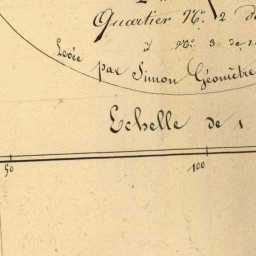 Quartier N.º 2 de
N.º 3 de
Levée
par Simon Géomètre
Echelle de 1
50 100